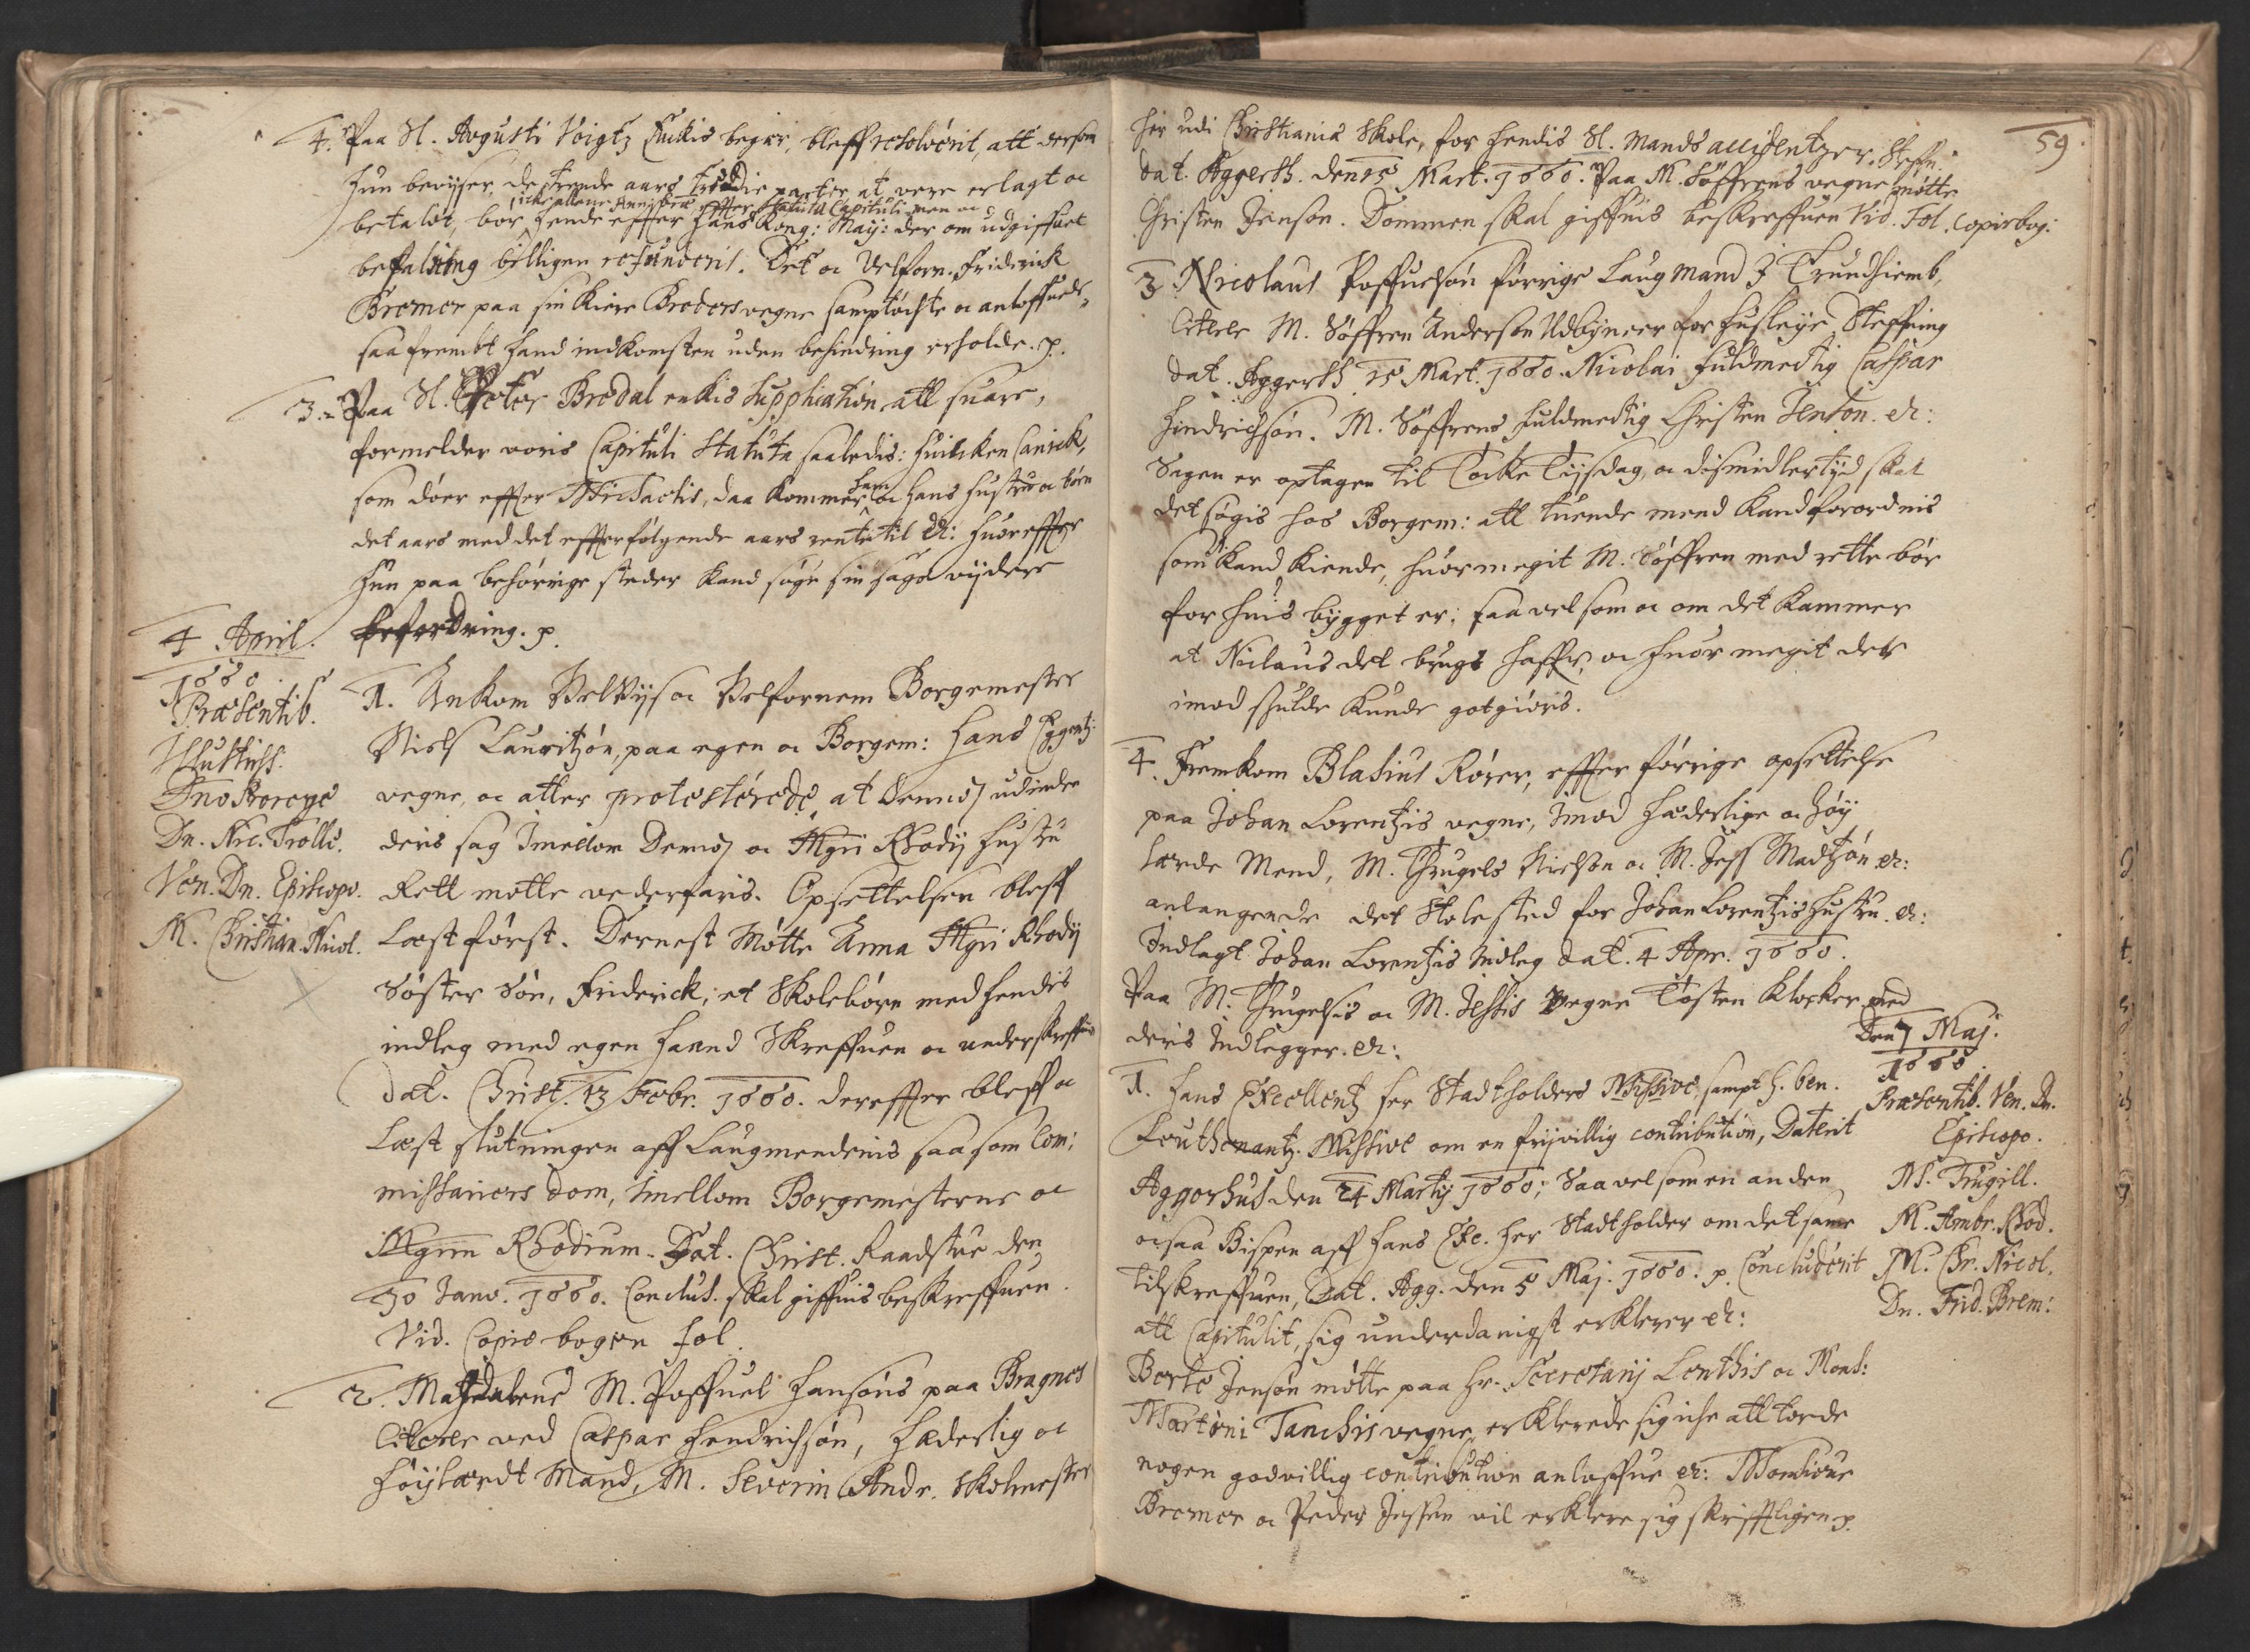 4. Paa Sl. Avgusti Voigtz Enkis begær, bleff resolverit, att dersom
hun bevijser, de trende aars tredie parter at vere erlagt oc
icke allene Anni grat: effter Statuta Capituli men oc
betalet, bør hende effter Hans Kong: Maij: der om udgiffuet
befalning billigen refunderis. Det oc Velforn. Friderick
Bremer paa sin Kiere Broders vegne samptøchte oc anloffuede,
saa frembt hand indkomsten uden behindring erholde. p.
3. Paa Sl. Peter Bredal enkis supplication att suare,
formelder voris Capituli Statuta saaledis: huilcken Canick,
som døer effter Michaelis, daa kommer ham oc hans hustru oc børn
det aars med det effterfølgende aars rente til etc: huoreffter
hun paa behørige steder kand søge sin sags vijdere
befordring. p.
4 April.
1660
Præsentib.
Illustriss.
Dno Prorege
Dn. Nic. Trolle.
Ven. Dn. Episcopo.
M. Christian. Nicol.
1. Ankom Velvijs oc Velfornem Borgemester
Niels Lauritzøn, paa egen oc Borgem: Hans Eggertz:
vegne, oc atter protesterede, at dennem udinden
deris sag imellom dennem oc Mgri Rhodij hustru
Rett motte vederfaris. Opsettelsen bleff
læst først. Dernest Møtte Anna Mgri Rhodij
Søster Søn, Friderick, et Skolebørn med hendis
indleg med egen haand Skreffuen oc underskreffuen
dat. Christ. 13 Febr. 1660. dereffter bleff oc
læst slutningen aff Laugmendenis saa som Com:
missariers dom, imellom Borgemesterne oc
Mgrm Rhodium. Dat. Christ. Raadstue den
30 Janv. 1660. Conclus. skal giffuis beskreffuen.
Vid. Copie bogen fol.
2. Magdalene M. Poffuel Hansøns paa Bragnes
citerer ved Caspar Hendrichsøn, Hæderlig oc
Høylærdt Mand, M. Severin Andr. Skolmester
59
her udi Christiania Skole, for hendis Sl. Mands accidentzer. Steffn.
dat. Aggersh. den 15 Mart. 1660. Paa M. Søffrens vegne møtte
Christen Jenson. Dommen skal giffuis beskreffuen Vid. Fol. Copiebog:
3 Nicolaus Poffuelsøn forrige Laugmand i Trundhiemb,
citerer M. Søffren Anderson Udbyneer for husleye, Steffning
dat. Aggersh 15 Mart. 1660. Nicolai fuldmectig Caspar
Hindrichsøn. M. Søffrens fuldmectig Christen Jenson. etc:
Sagen er optagen til Tacke Tijsdag, oc dismidlertijd skal
det søgis hos Borgem: att tuende mend kand forordnis
som kand kiende, huor megit M. Søffren med rette bør
for huis bygget er; saa vel som oc om det kammer
at Niclaus det brugt haffr, oc huor megit der
imod skulde kunde gotgiøris.
4. Fremkom Blasius Rører, effter forrige opsettelse
paa Johan Lorentzis vegne, imod hæderlige oc høy
lærde Mend, M. Thrugels Nielson oc M. Jess Madtzøn etc:
anlangende det Stolested for Johan Lorentzis hustru. etc:
Indlagt Johan Lorentzis indleg dat. 4 Apr. 1660.
Paa M. Thrugelsis oc M. Jessis vegne Tosten Klocker med
deris Indlegger. etc:
Den 7 Maj:
1660
Præsentib. Ven. Dn.
Episcopo.
M. Trugill.
M. Ambr. Rhod.
M. Chr. Nicol.
Dn. Frid. Brem:
1. Hans Excellentz her Stadtholders Missive, sampt H. Gen.
Leuthenantz Missive om en frijvillig contribution, Daterit
Aggershus den 24 Martij 1660; Saa vel som en anden
ocsaa Bispen aff hans Exc. her Stadtholder om det samme
tilskreffuen, Dat. Agg. den 5 Maj. 1660. p. Concluderit
att Capitulit, sig underdanigst erklerer etc:
Berte Jensøn møtte paa Hr. Secretarij Lenthis oc Mons:
Martini Tanchis vegne, erklerede sig iche att torde
nogen godvillig contribution anloffue etc: Monsieur
Bremer oc Peder Jessen vil erklere sig skrifftligen p.